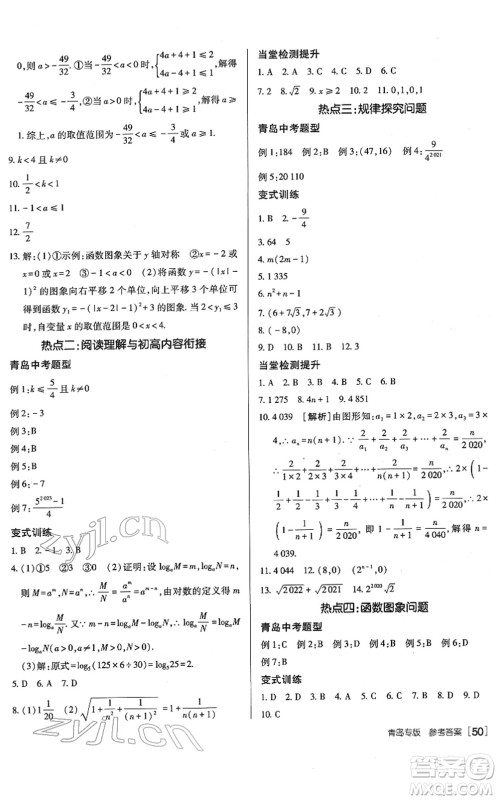 0,则a>-49/32. ①当-49/32<a<0时,{4a+4+1≤2, 4a-4+1≤2,解得
-49/32<a≤-3/4;②当a>0时,{4a+4+1≥2, 4a-4+1≤2,解得0<a≤
1.综上,a的取值范围为-49/32<a≤-3/4或0<a≤
9. k<4且k≠0
10. 1/2<k<1
12. 7/2
13. 解:(1)①示例:函数图象关于y轴对称 ②x=-2或x
=0或x=2 ③-1<a<0 (2)将函数y=-|x|(|x|
-2)的图象向右平移2个单位,再向上平移3个单位,
可得函数y₁=-(|x-2|-1)²+4的图象.当2<y₁≤
时,自变量x的取值范围是0<x<4.
热点二:阅读理解与初高内容衔接
青岛中考题型
例1:k≤5/4且k≠1
例2:-3
例3:B
例4:B
例5:B
例6:-7
例7:(5^2023-1)/4
变式训练
1. B 2. -1 3. B
4. (1)2 5 7 (2)①证明:设logₐM=m,logₐN=n,
则M=aᵐ,N=aⁿ,∴M/N=aᵐ/aⁿ=aᵐ⁻ⁿ,∴logₐM/N=
m-n=logₐM/N.又∵m-n=logₐM-logₐN,∴
logₐM/N=logₐM-logₐN(a>0,a≠1,M>0,N>0).
(3)解:原式=log₅(125×6÷30)=log₅25=2.
5. D 6. A 7. D
当堂检测提升
1. A 2. D 3. C 4. C 5. D 6. C
7. 2 8. √2 9. P 10. x≥2 11. 0,1,0,1
热点三:规律探究问题
青岛中考题型
例1:184 例2:B 例3:(47,16) 例4:9/4^2021
例5:20 110
变式训练
1. B 2. -9/4
3. 64 5
4. m(2m-1)
5. 1 335
6. n²
7. (6+7√3,6+√3)
8. 2
当堂检测提升
1. A 2. D 3. B 4. B 5. D 6. C
7. 1 275 8. 4n+1 9. 4 851
10. 4 039 [解析]由图形知:a₁=1×2,a₂=2×3,a₃=3×
4,∴aₙ=n(n+1).∵2/a₁+2/a₂+2/a₃+…+2/aₙ=n/2 020,∴
2/(1×2)+2/(2×3)+2/(3×4)+…+2/(n(n+1))=n/2 020,∴2×(1-
1/2+1/2-1/3+1/3-1/4+…+1/n-1/(n+1))=n/2 020,∴2×
(1-1/(n+1))=n/2 020,即1-1/(n+1)=n/4 040,解得n=
4 039.
11. 4 044 12. (2ⁿ⁻¹,0)
13. √2022+√2021 14. 2^2020√2
热点四:函数图象问题
青岛中考题型
例1:C 例2:B 例3:B 例4:B 例5:D 例6:C
例7:B
变式训练
1. D 2. A 3. C 4. D 5. B 6. D 7. C 8. B 9. D
10. C
青岛专版 参考答案 [50]
zyjl.cn
zyjl.cn